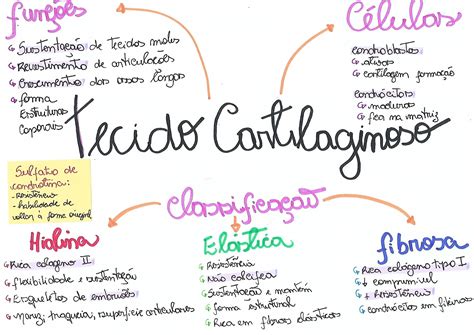 funções
Sustentação de tecidos moles
Revestimento de articulações
Crescimento dos ossos longos
forma
Estruturas
Corporais
Células
condroblastos
ativos
cartilagem formação
condrócitos
maduros
fica na matriz
Tecido Cartilaginoso
Sulfato de
condroitina:
- resistência
- habilidade de
voltar à forma original
Classificação
Hialina
Rica colágeno II
flexibilidade e sustentação
Esqueletos de embriões
nariz, traqueia, superfície articulares
Elástica
Resistência
Não calcifica
Sustentação e mantém
forma estrutural
Rica em fibras elásticas
fibrosa
Rica colágeno tipo I
↓ compressível
+ Resistência
condrócitos em fibras